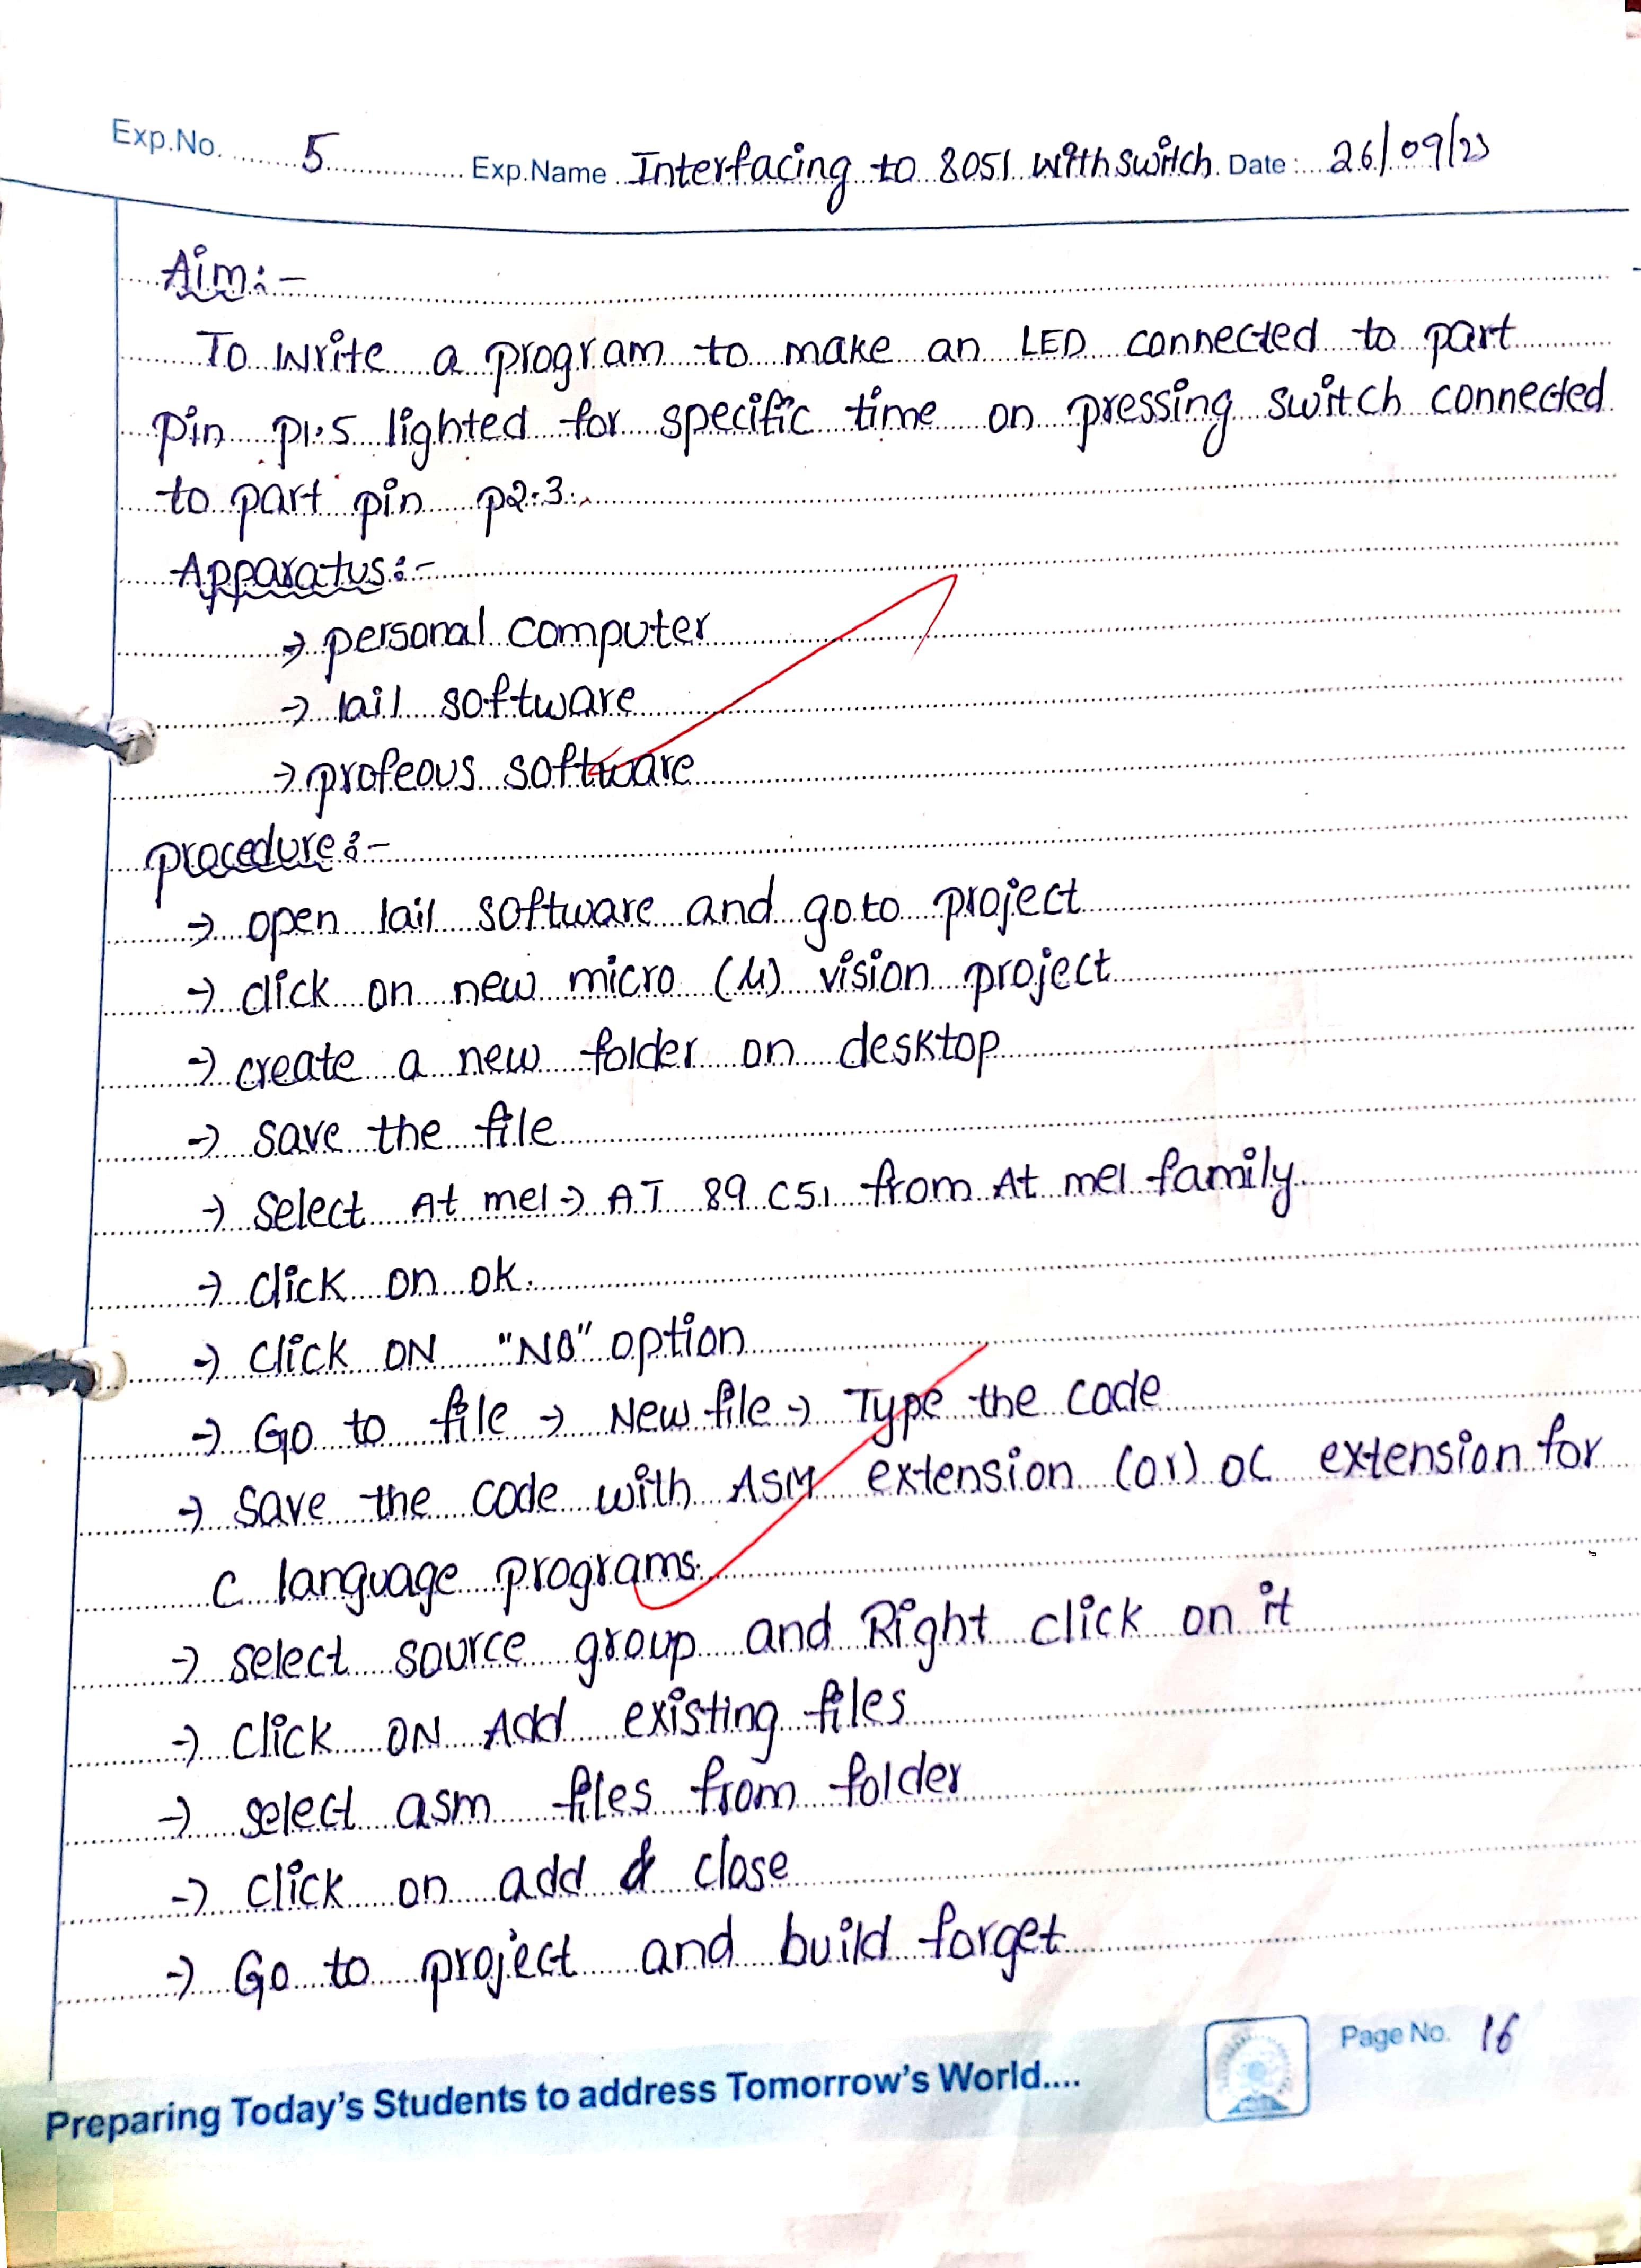 Exp.No. 5 Exp.Name Interfacing to 8051 with switch. Date : 26/09/23
Aim:-
To write a program to make an LED connected to part
pin p1.5 lighted for specific time on pressing switch connected
to part pin p2.3.
Apparatus:-
→ personal computer
→ lail software
→ profeous software
procedure:-
→ open lail software and goto project
→ click on new micro (μ) vision project
→ create a new folder on desktop
→ save the file
→ select At mel → AT 89 C51 from At mel family
→ click on ok.
→ click ON "NO" option
→ Go to file → New file → Type the code
→ save the code with ASM extension (or) oc extension for
c language programs.
→ select source group and Right click on it
→ click ON Add existing files
→ select asm files from folder
→ click on add & close
→ Go to project and build forget
Page No. 16
Preparing Today's Students to address Tomorrow's World....